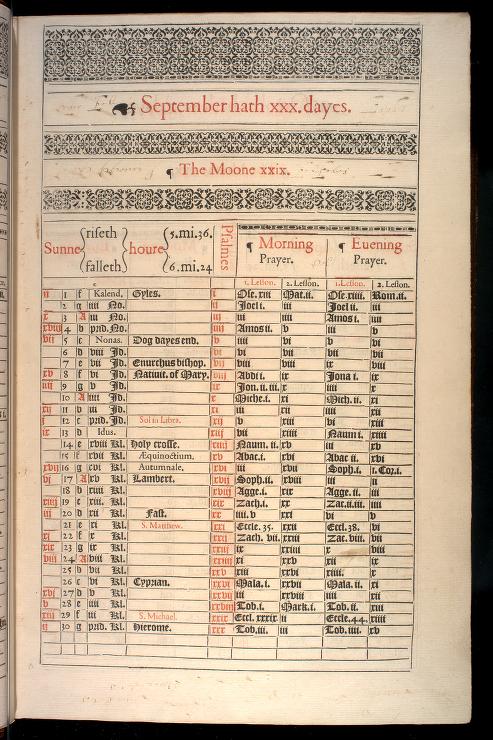 September hath xxx. dayes.
¶ The Moone xxix.
Sunne { riseth falleth } houre { 5. mi. 36. 6. mi. 24
Psalmes
¶ Morning Prayer.
¶ Euening Prayer.
1. Lesson. 2. Lesson. 1. Lesson. 2. Lesson.
1 f Kalend. Gyles. i Ose. xiii Mat. ii. Ose. xiiii. Rom. ii.
2 g iiii No. ii Ioel i. iii Ioel ii. iii
3 A iii No. iii iii iiii Amos i. iiii
4 b prid. No. iiii Amos ii. v iii v
5 c Nonas. Dog dayes end. v iiii vi v vi
6 d viii Jd. vi vi vii vii vii
7 e vii Jd. Enurchus bishop. vii viii viii ix viii
8 f vi Jd. Natiuit. of Mary. viii Abdi i. ix Iona i. ix
9 g v Jd. ix Ion. ii. iii. x iiii x
10 A iiii Jd. x Miche. i. xi Mich. ii. xi
11 b iii Jd. xi iii xii iiii xii
12 c prid. Jd. Sol in Libra. xii v xiii vi xiii
13 d Idus. xiii vii xiiii Naum i. xiiii
14 e xviii Kl. Holy crosse. xiiii Naum. ii. xv iii xv
15 f xvii Kl. Æquinoctium, xv Abac. i. xvi Abac ii. xvi
16 g xvi Kl. Autumnale. xvi iii xvii Soph. i. 1. Cor. i.
17 A xv Kl. Lambert. xvii Soph. ii. xviii iii ii
18 b xiiii Kl. xviii Agge. i. xix Agge. ii. iii
19 c xiii Kl. xix Zach. i. xx Zac. ii. iii. iiii
20 d xii Kl. Fast. xx iiii. v xxi vi v
21 e xi Kl. S. Matthew. xxi Eccle. 35. xxii Eccl. 38. vi
22 f x Kl. xxii Zach. vii. xxiii Zac. viii. vii
23 g ix Kl. xxiii ix xxiiii x viii
24 A viii Kl. xxiiii xi xxv xii ix
25 b vii Kl. xxv xiii xxvi xiiii. x
26 c vi Kl. Cyprian. xxvi Mala. i. xxvii Mala. ii. xi
27 d v Kl. xxvii iii xxviii iiii xii
28 e iiii Kl. xxviii Tob. i. Mark. i. Tob. ii. xiii
29 f iii Kl. S. Michael. xxix Eccl. xxxix ii Eccle. 44. xiiii
30 g prid. Kl. Hierome. xxx Tob. iii. iii Tob. iiii. xv